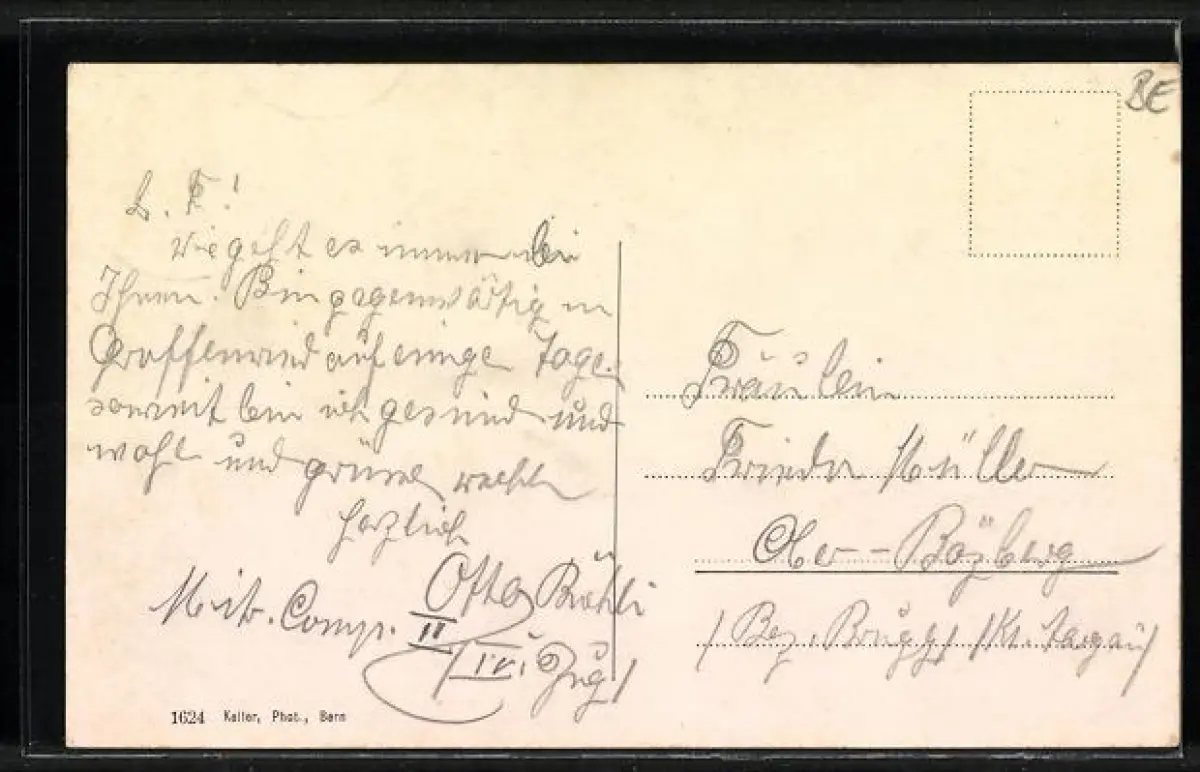 BE
L. F!
Wie geht es immer bei
Ihnen. Bin gegenwärtig in
Graffenried auf einige Tage.
soweit bin ich gesund und
wohl und grüsse recht
herzlich
Otto
Mitr. Comp. II
/IV. Zug/
Fräulein
Frieda Müller
Ober-Bözberg
/Bez. Brugg/ /Kt. Aargau/
1624 Keller, Phot., Bern